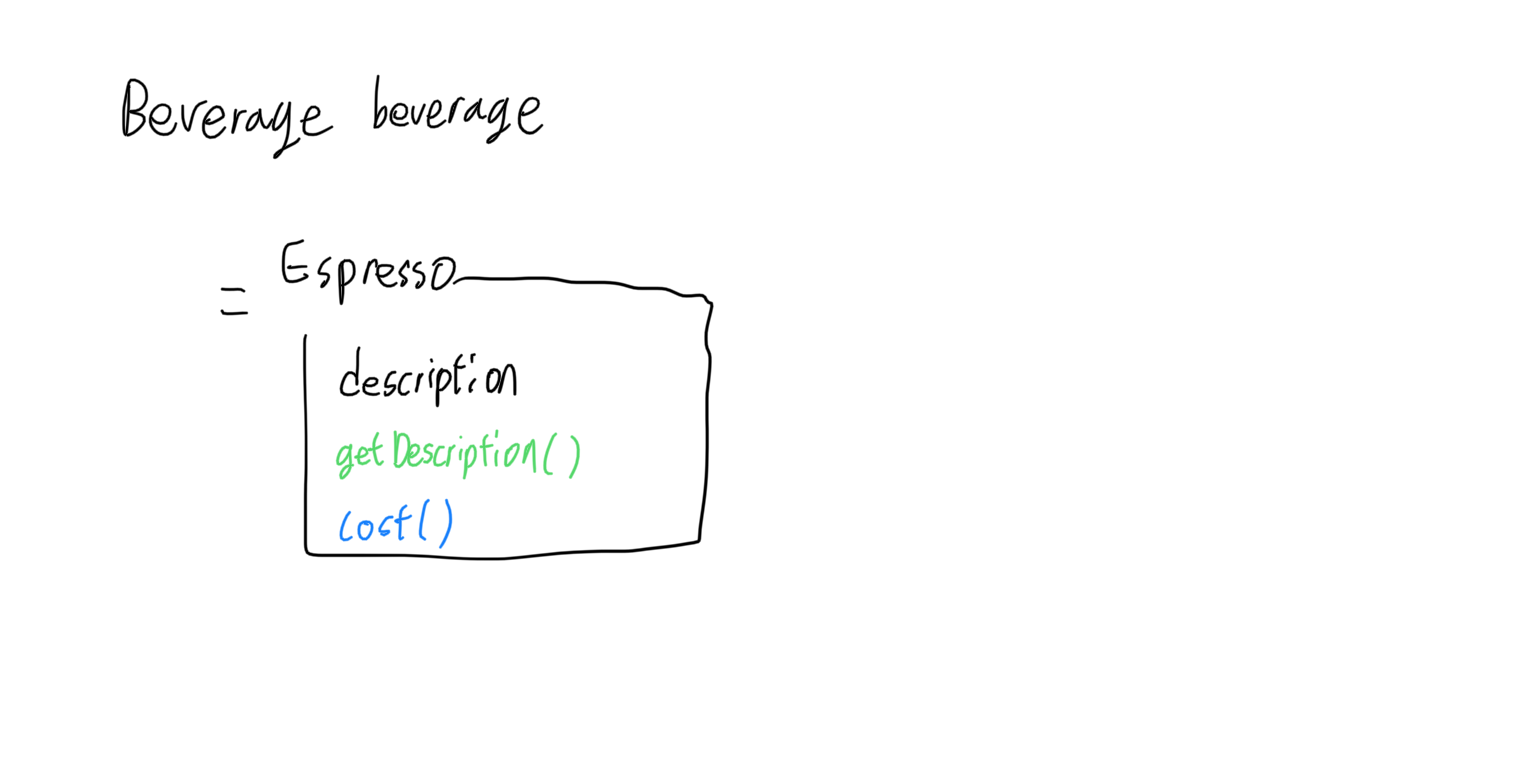 Beverage beverage
= Espresso
description
getDescription()
cost()